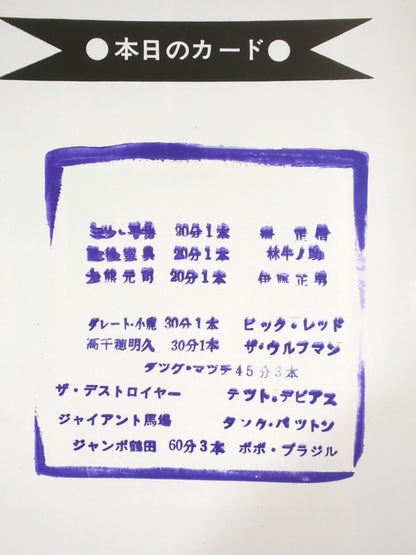 ●本日のカード●
20分1本
肥後宗典 20分1本 林牛ノ助
大熊元司 20分1本 伊藤正男
グレート・小鹿 30分1本 ビック・レッド
高千穂明久 30分1本 ザ・ウルフマン
タツグ・マツチ45分3本
ザ・デストロイヤー テツド・デビアス
ジャイアント馬場 タンク・パツトン
ジャンボ鶴田 60分3本 ボボ・ブラジル